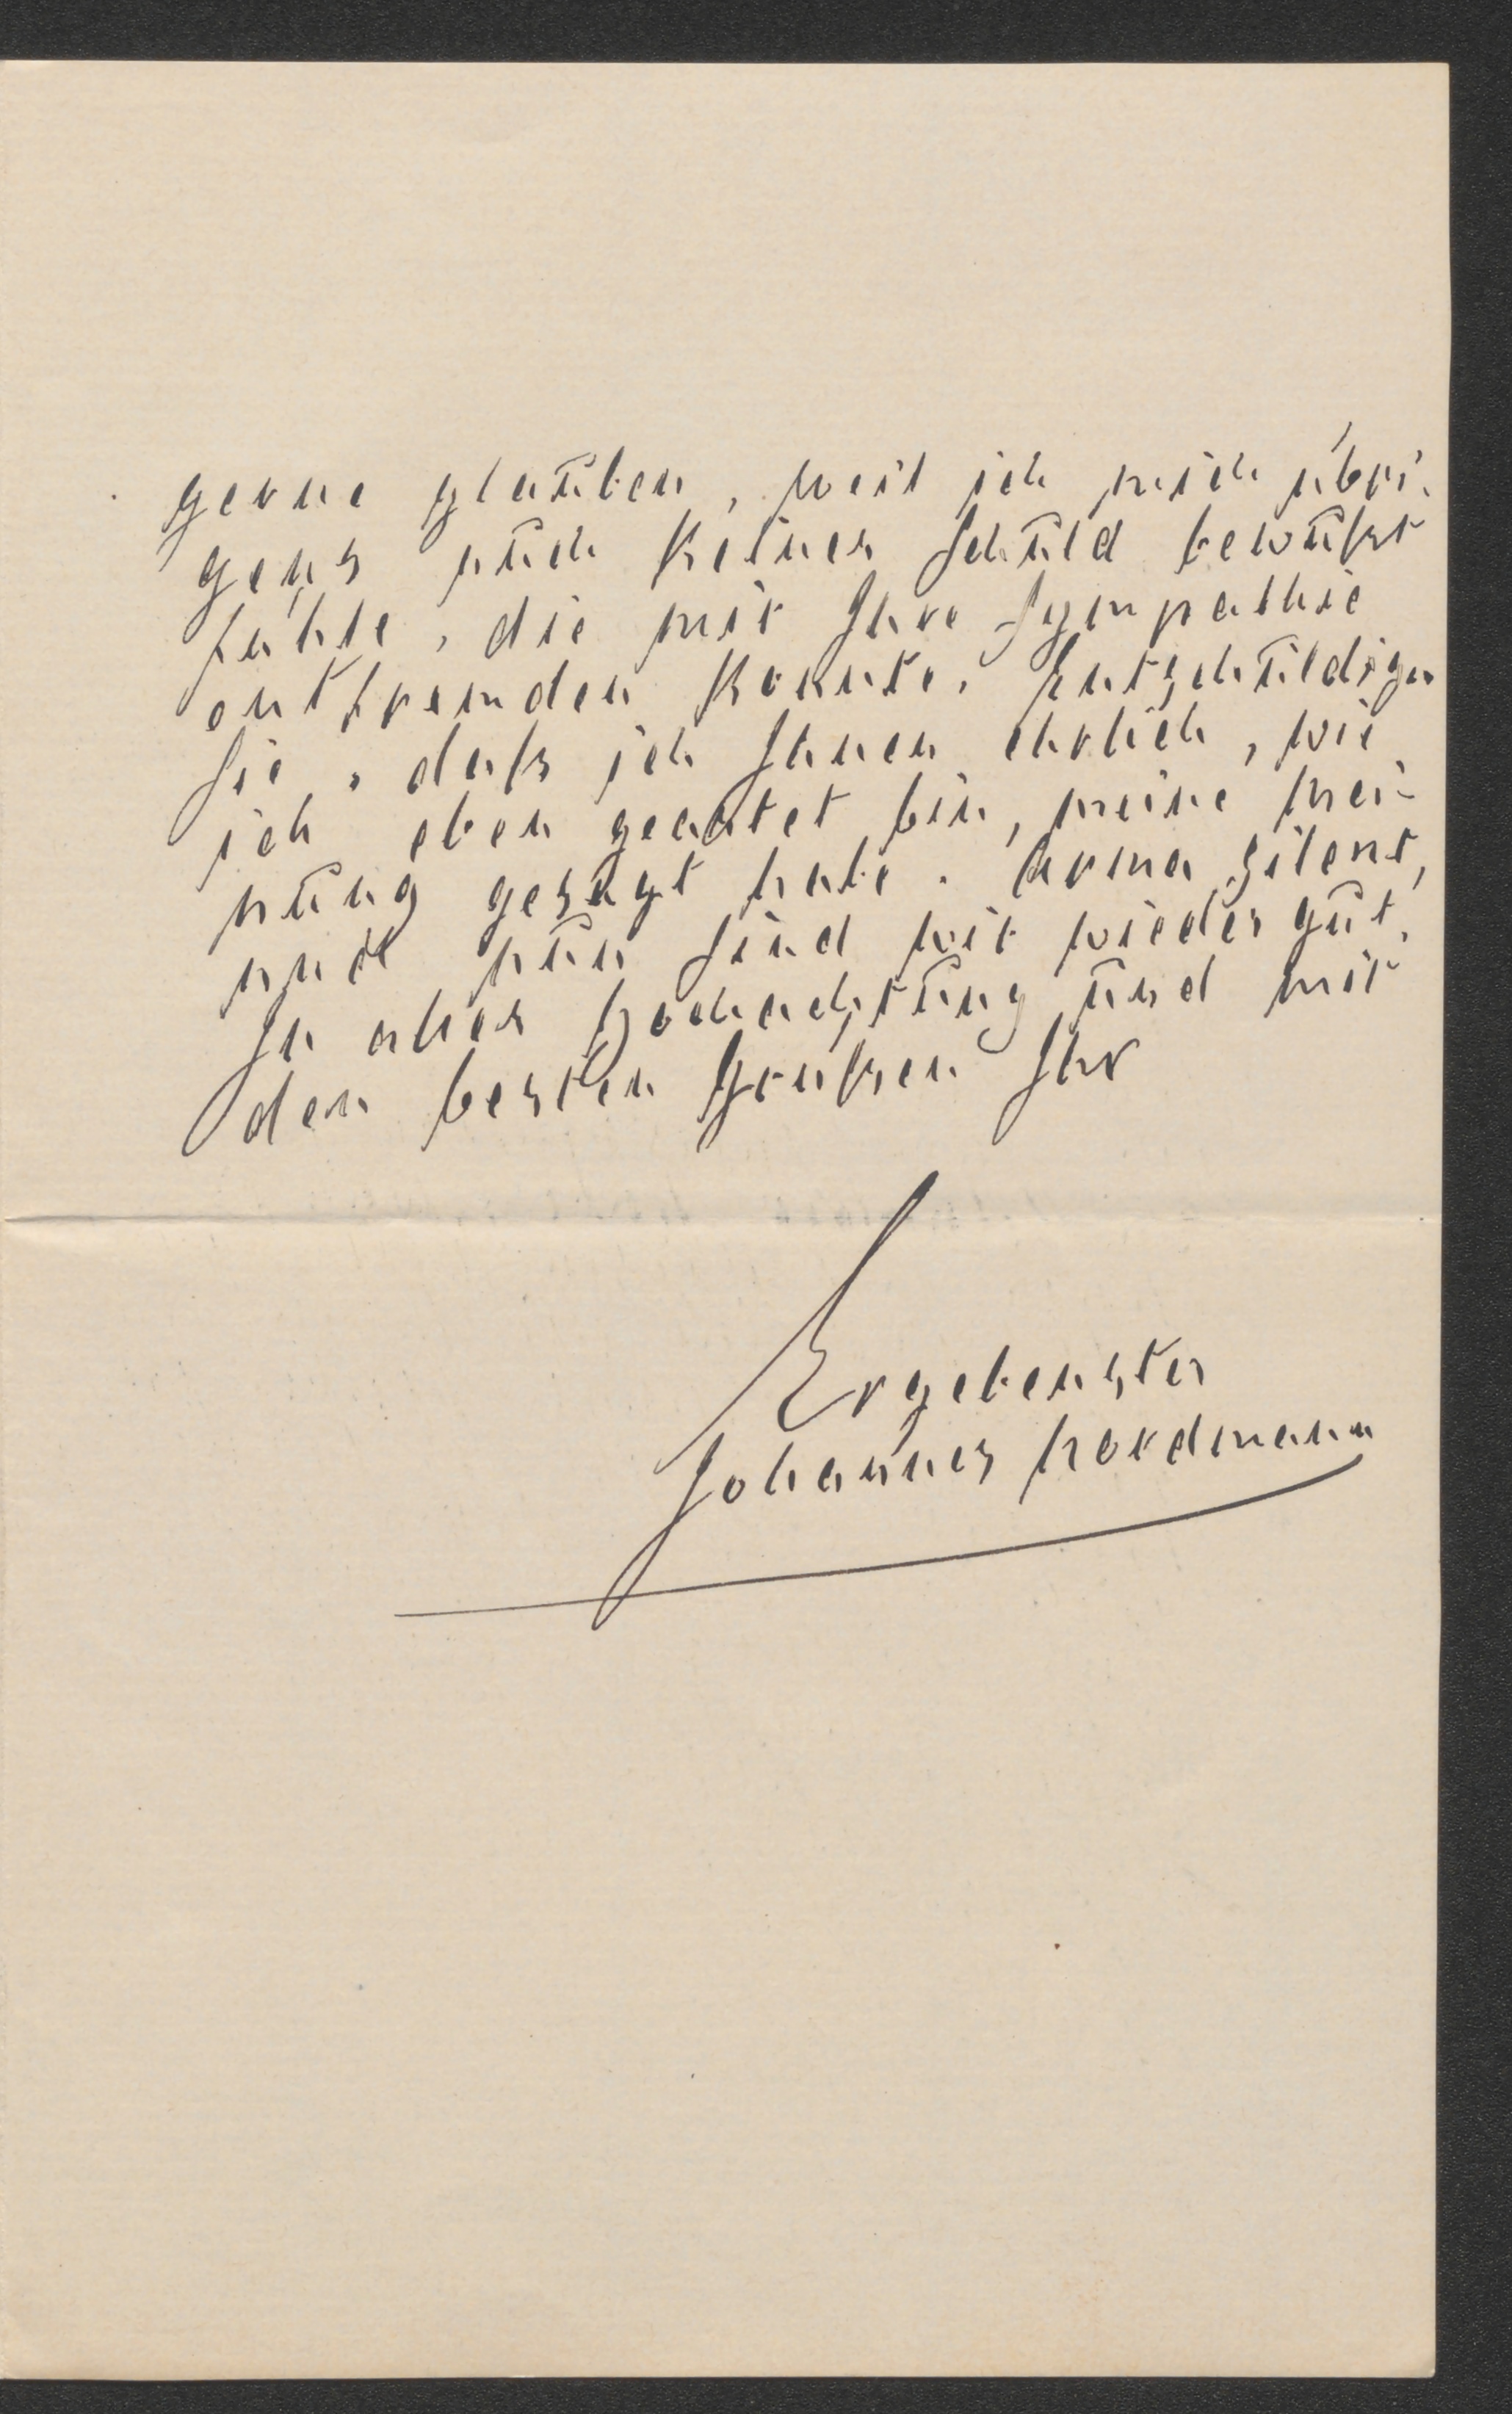 gerne glauben, weil ich mich übri-
gens auch keiner Schuld bewußt
fühle, die mir Ihre Sympathie
entfremden konnte. Entschuldigen
Sie, daß ich Ihnen ehrlich, wie
ich eben geartet bin, meine Mei-
nung gesagt habe. Arma silent,
und nun sind wir wieder gut.
In alter Hochachtung und mit
den besten Grüßen Ihr
Ergebenster
Johannes Nordmann